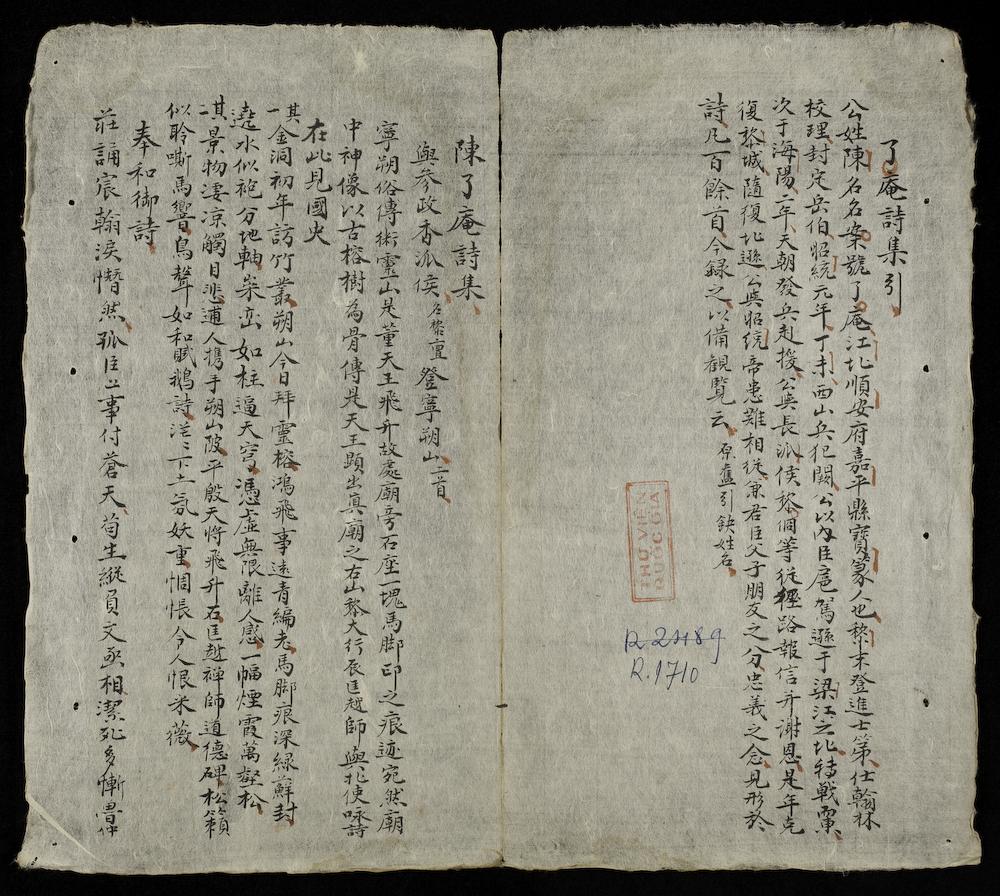 了庵詩集引
公姓陳名名案號了庵江北順安府嘉平縣寶篆人也黎末登進士第仕翰林
校理封定岳伯昭統元年丁未西山兵犯闕公以內臣扈駕遜于梁江之北轉戰
次于海陽二年天朝發兵赴援公與長派侯黎侗等從路報信并謝恩是年克
復黎城隨復北遜公與昭統帝患難相從兼君臣父子朋友之分忠義之念見形於
詩凡百餘首今錄之以備觀覽云 原舊引缺姓名
THƯ VIỆN
QUỐC GIA
R.2489
R.1710
陳了庵詩集
與參政香派侯名黎亶登寧朔山二首
寧朔俗傳術靈山是董天王飛升故處廟旁石座一塊馬脚印之痕迹宛然廟
中神像以古榕樹為骨傳是天王顯出真廟之右山黎大行辰匡越師與北使咏詩
在此見國史
其一金洞初年訪竹叢朔山今日拜靈榕鴻飛事遠青編老馬脚痕深綠蘚封
遶水似袍分地軸崇峦如柱逼天穹憑虛無限離人感一幅煙霞萬壑松
其二景物凄凉觸目悲逋人携手朔山陂平殷天將飛升石匡越禪師道德碑松籟
似聆嘶馬響鳥聲如和賦鵝詩茫茫下土氛妖重惆悵令人恨采薇
奉和御詩
莊誦宸翰淚潸然孤臣心事付蒼天苟生縱負文丞相潔死多慚